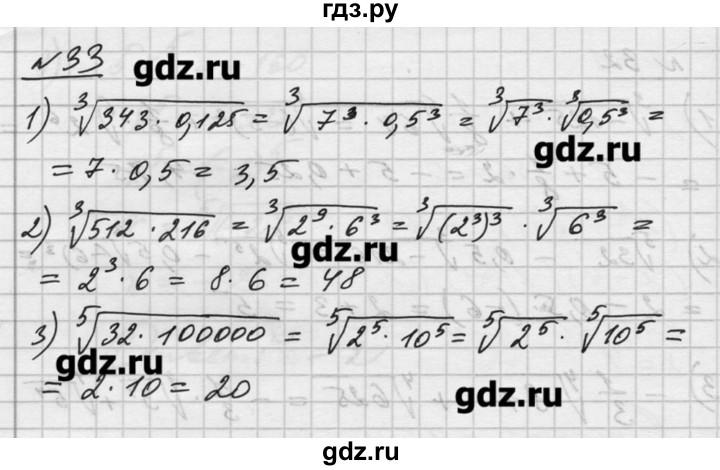 гдз.ру
№ 33
gdz.ru
1) ∛(343 · 0,125) = ∛(7³ · 0,5³) = ∛(7³) · ∛(0,5³) =
gdz.ru
= 7 · 0,5 = 3,5
2) ∛(512 · 216) = ∛(2⁹ · 6³) = ∛((2³)³) · ∛(6³) =
gdz.ru
= 2³ · 6 = 8 · 6 = 48
3) ⁵√(32 · 100000) = ⁵√(2⁵ · 10⁵) = ⁵√(2⁵) · ⁵√(10⁵) =
gdz.ru
= 2 · 10 = 20
gdz.ru
gdz.ru